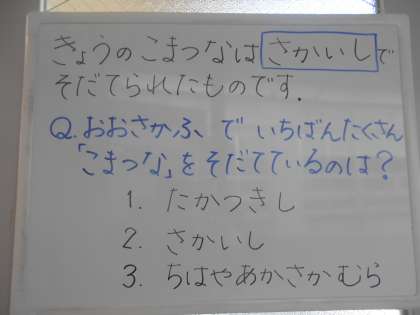 きょうのこまつなはさかいしで
そだてられたものです.
Q.おおさかふ で いちばんたくさん
「こまつな」をそだてているのは?
1. たかつきし
2. さかいし
3. ちはやあかさかむら